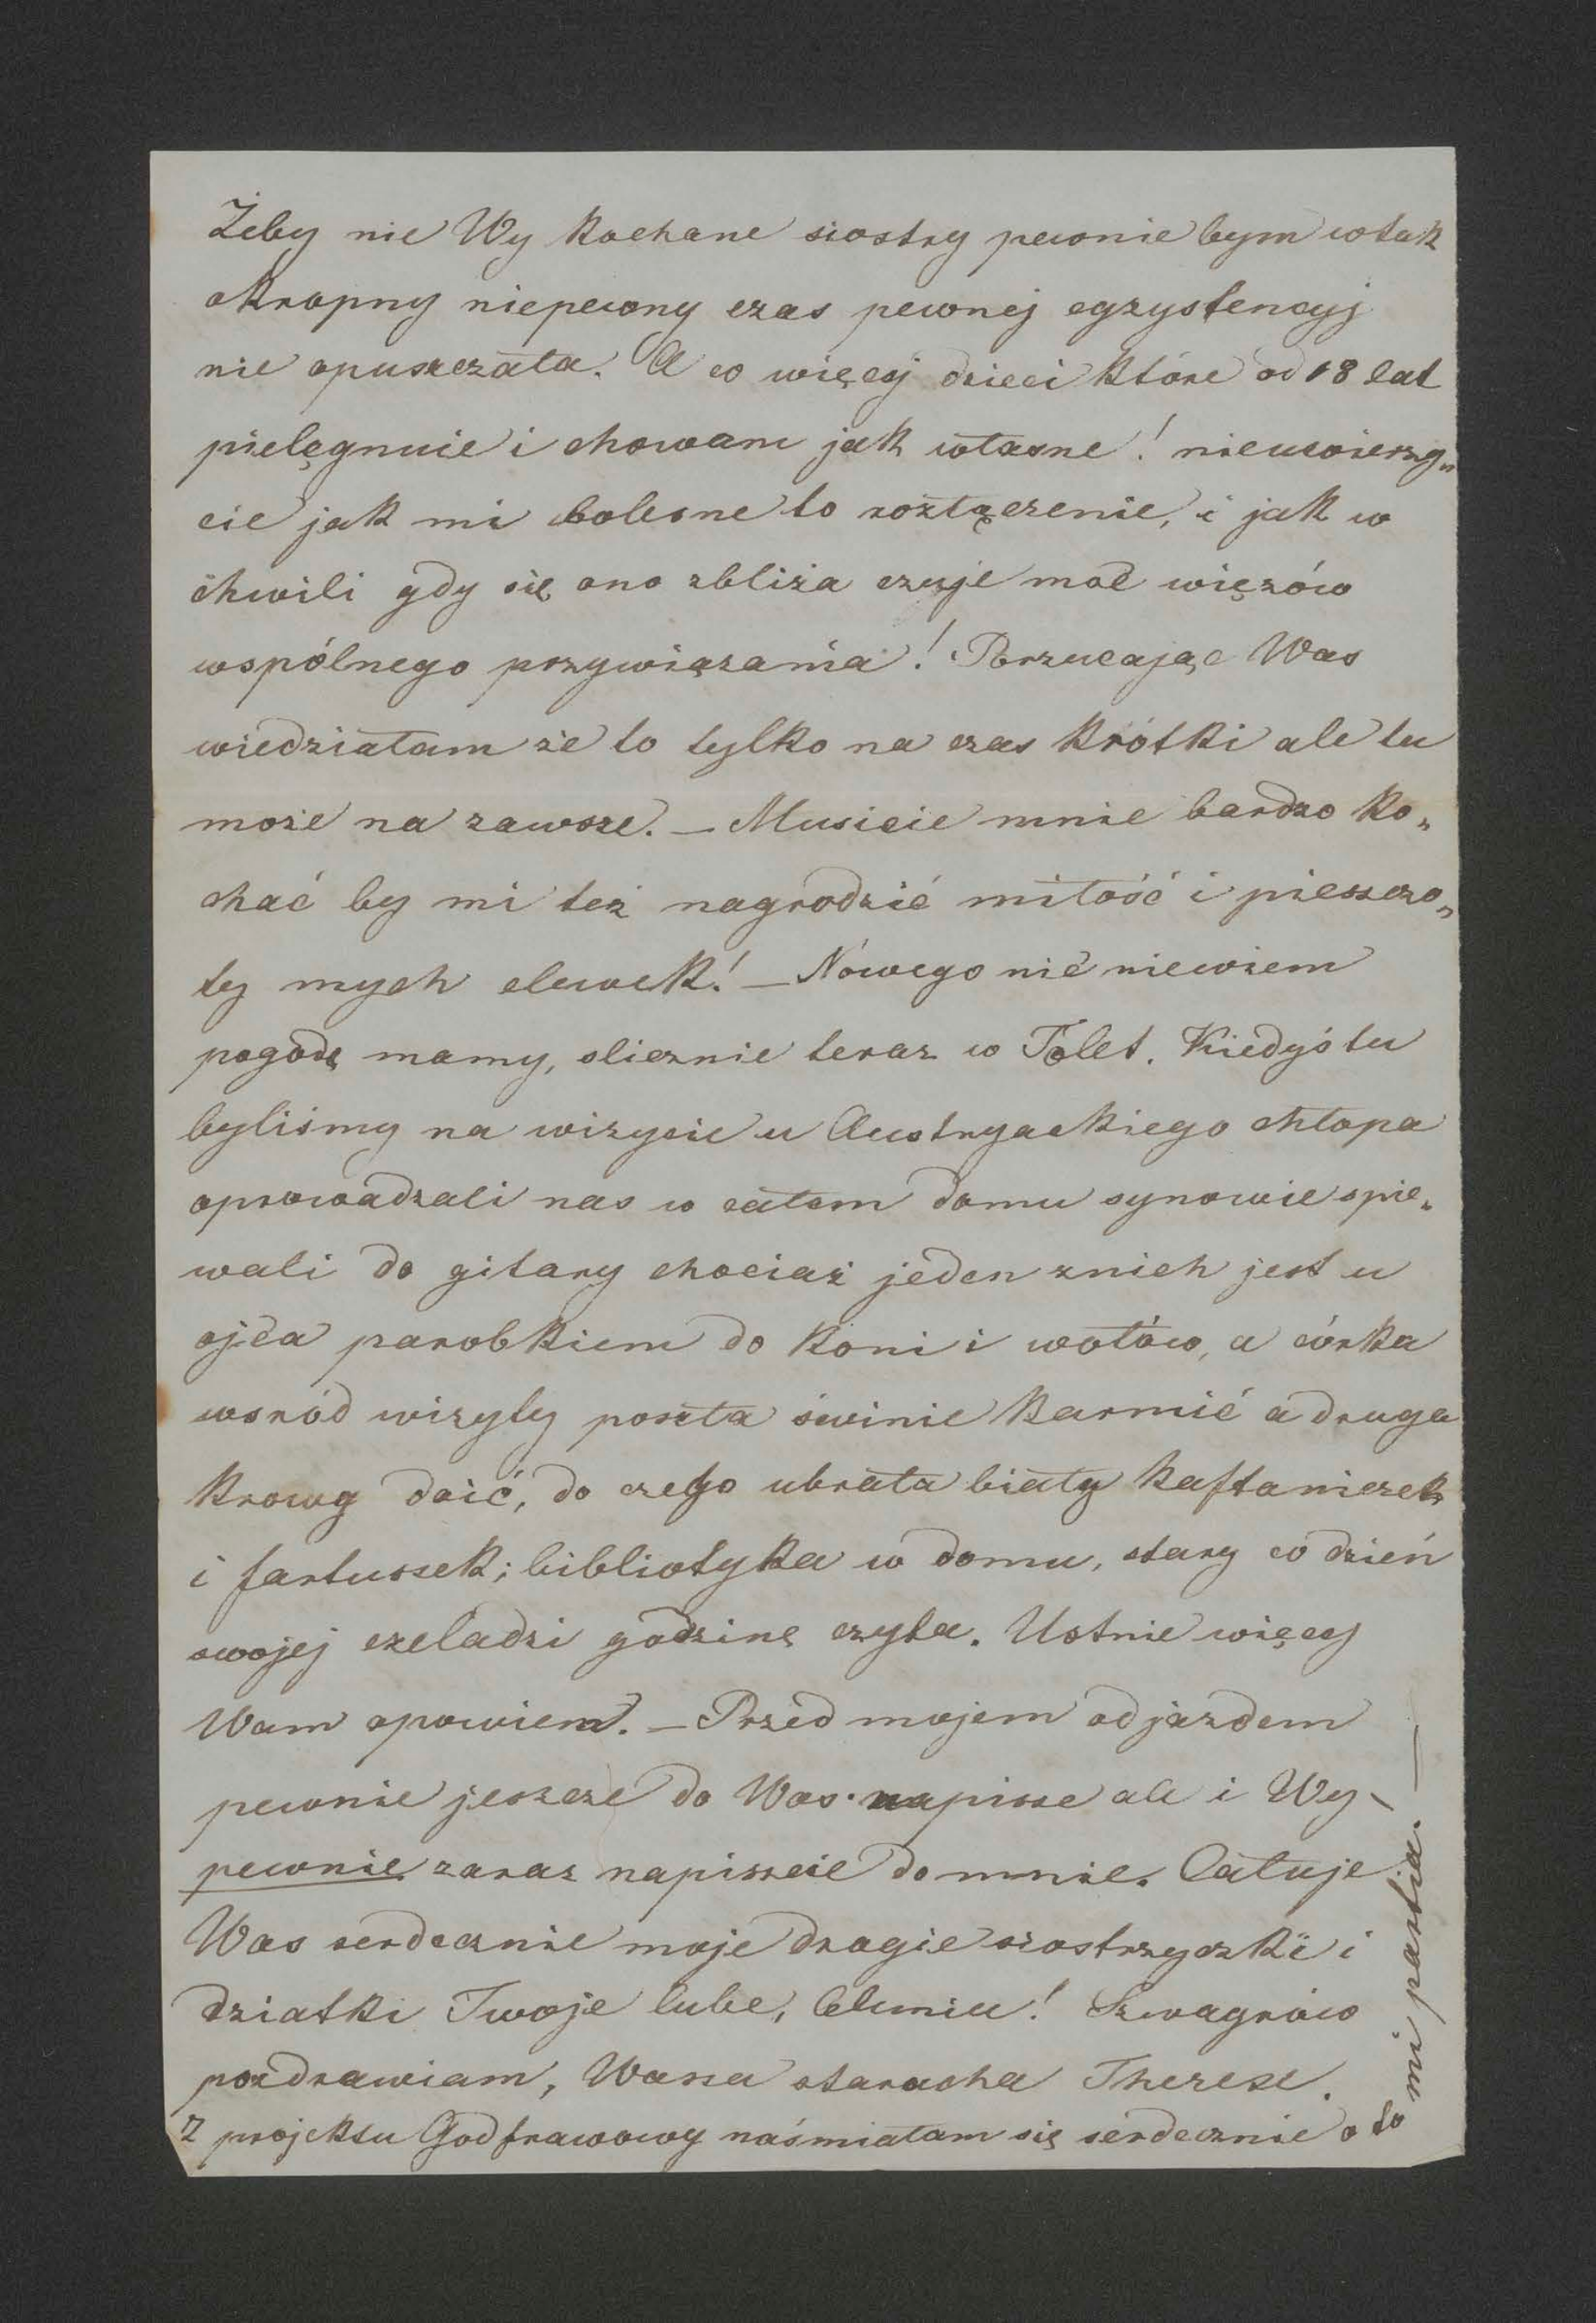 Żeby nie Wy kochane siostry pewnie bym w tak
okropny niepewny czas pewnej egzystencyj
nie opuszczała. A co więcej dzieci które od 18 lat
pielęgnuie i chowam jak własne! nieuwierzy„
cie jak mi bolesne to rozłączenie, i jak w
chwili gdy się ono zbliża czuje moc więzów
wspólnego przywiązania! Porzucając Was
wiedziałam że to tylko na czas krótki ale tu
może na zawsze. — Musicie mnie bardzo ko„
chać by mi też nagrodzić miłość i pieszczo„
ty mych elewek! — Nówego nic niewiem
pogodę mamy, slicznie teraz w Tolet. Kiedyś tu
byliśmy na wizycie u Austryackiego chłopa
oprowadzali nas w całem domu synowie spie„
wali do gitary chociaż jeden znich jest u
ojca parobkiem do koni i wołów, a córka
wsród wizyty poszła świnie karmić a druga
krowy doić, do czego ubrała biały kaftaniczek
i fartuszek; bibliotyka w domu, stary co dzień
swojej czeladzi godzinę czyta. Ustnie więcej
Wam opowiem. — Przed mojem odjazdem
pewnie jeszcze do Was napisze ale i Wy
pewnie zaraz napiszcie do mnie. Całuje
Was serdecznie moje drogie siostrzyczki i
dziatki Twoje lube, Celuniu! Szwagrów
pozdrawiam, Wasza starucha Therese.
Z projektu Godfrawowy naśmiałam się serdecznie oto
mi partia. —